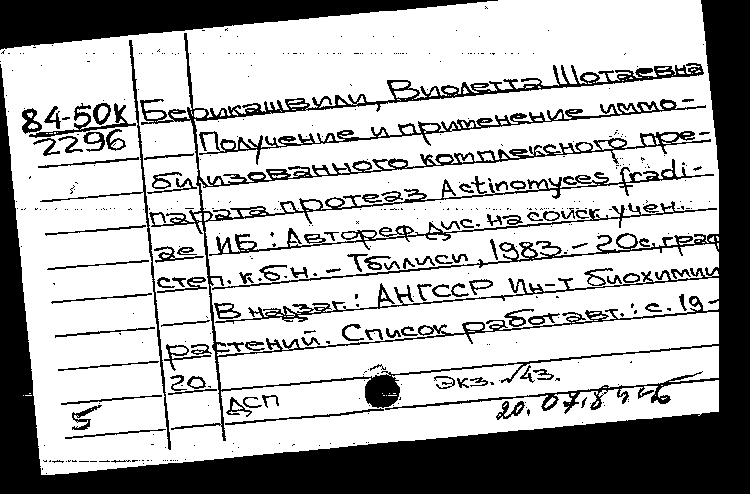 84-50К Берикашвили, Виолетта Шотаевна
2296 Получение и применение иммо-
билизованного комплексного пре-
парата протеаз Actinomyces fradi-
ae ИБ : Автореф дис. на соиск. учен.
степ. к.б.н. – Тбилиси, 1983. – 20с., граф
В надзаг.: АНГССР, Ин-т биохимии
растений. Список работ авт.: с. 19-
20.
ДСП Экз. №43.
5 20.07.84